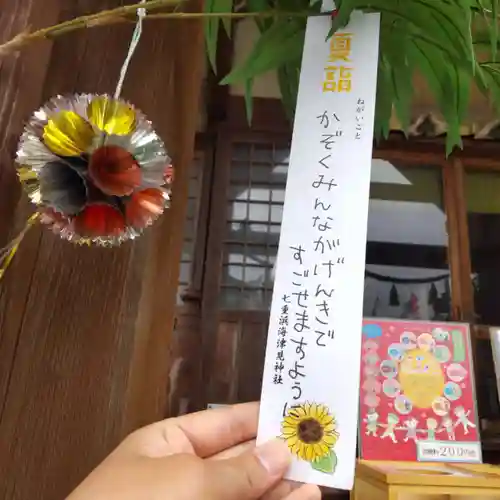 夏詣
ねがいごと
かぞくみんながげんきで
すごせますように
七重浜海津見神社
200